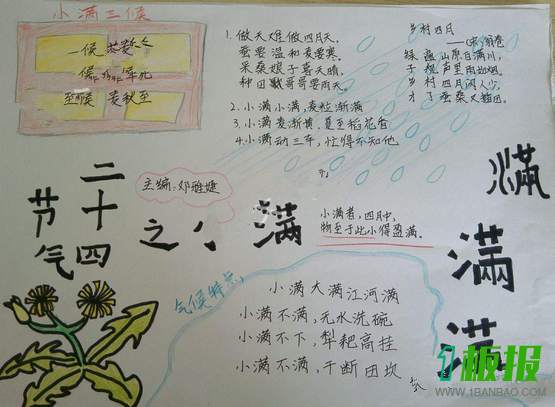 小满三候
一候 苦菜
至候 麦秋至
1.做天难做四月天,
蚕要温和麦要寒。
采桑娘子喜天晴,
种田哥哥要雨天。
2.小满小满,麦粒渐满
3.小满麦渐黄,夏至稻花香
4.小满动三车,忙得不知他
乡村四月
绿遍山原白满川,
子规声里雨如烟。
乡村四月闲人少,
才了蚕桑又插田。
主编:邓雅婕
二十四
节气
之
小
满
小满者,四月中,
物至于此小得盈满。
满
满
满
气候特点
小满大满江河满
小满不满,无水洗碗
小满不下,犁耙高挂
小满不满,干断田坎
1板报
WWW.1BANBAO.COM